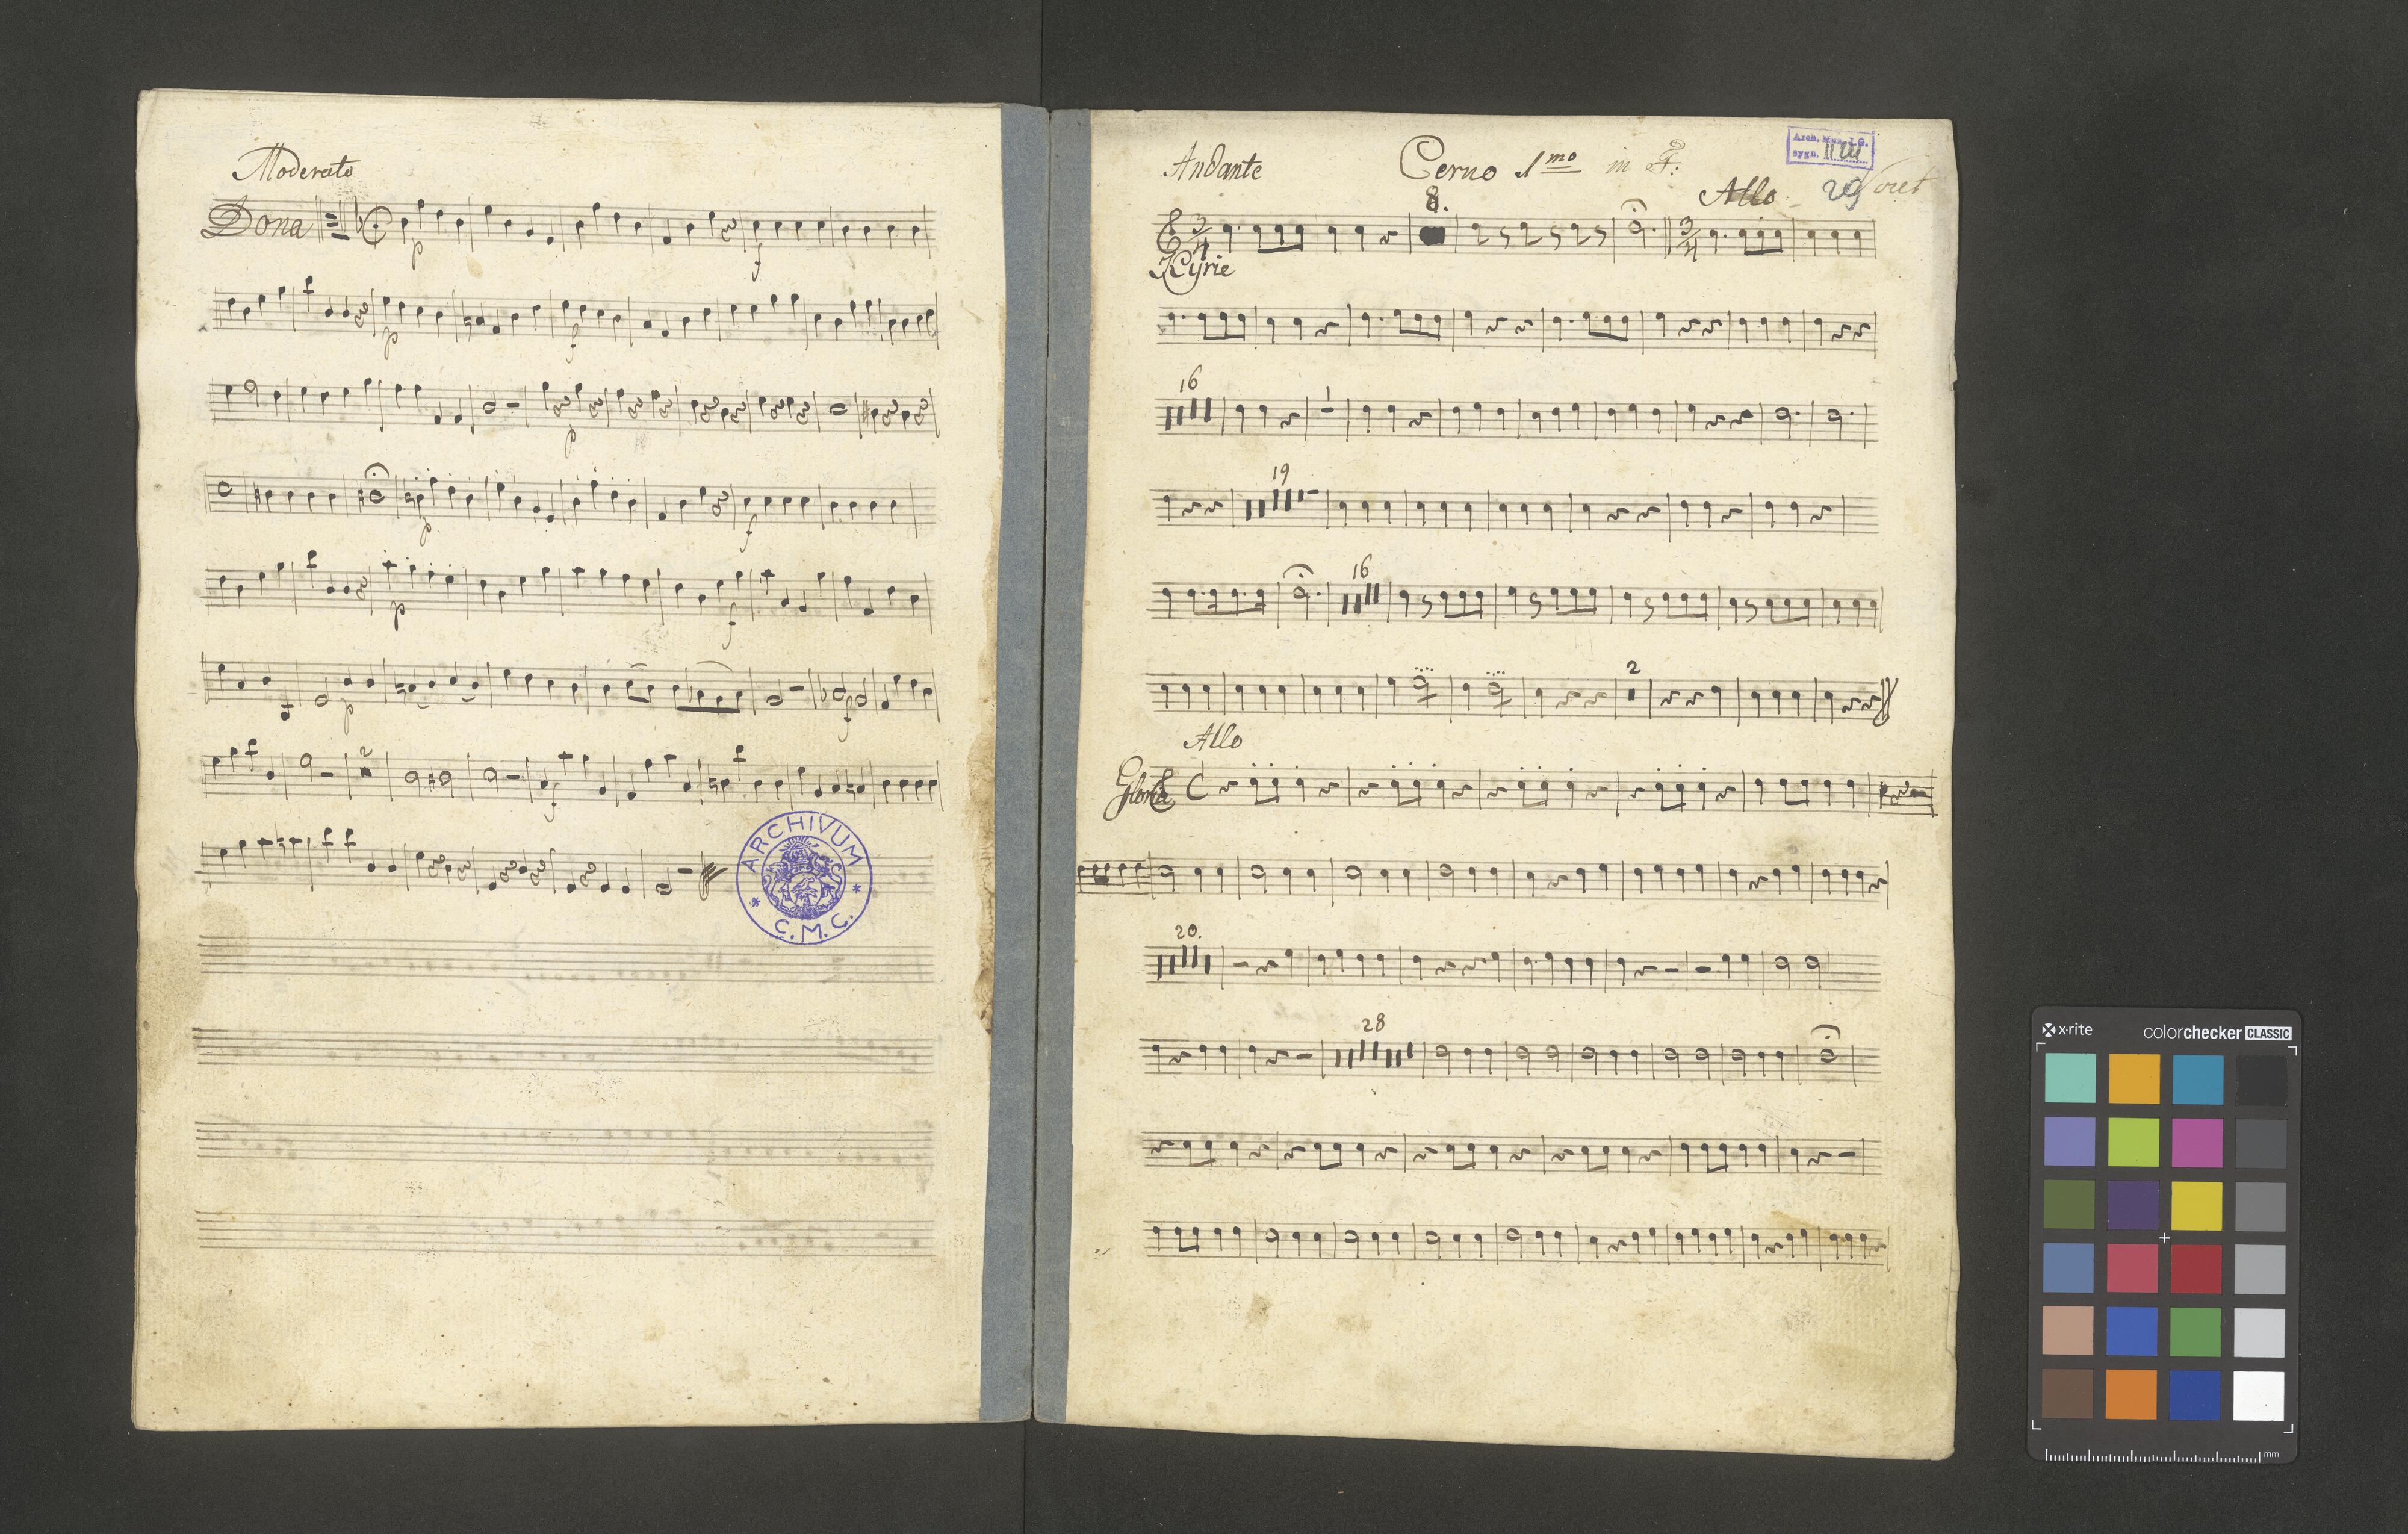 Moderato
Dona
p
f
p
f
p
p
f
p
f
p
f
2
f
ARCHIVUM
* C.M.C. *
Andante
Cerno 1mo in F:
Arch. Mus. J. G.
sygn.
8.
Allo
29
3
4
3
4
Kyrie
16
1
19
16
2
Allo
Gloria
20.
28
x-rite
colorchecker CLASSIC
mm